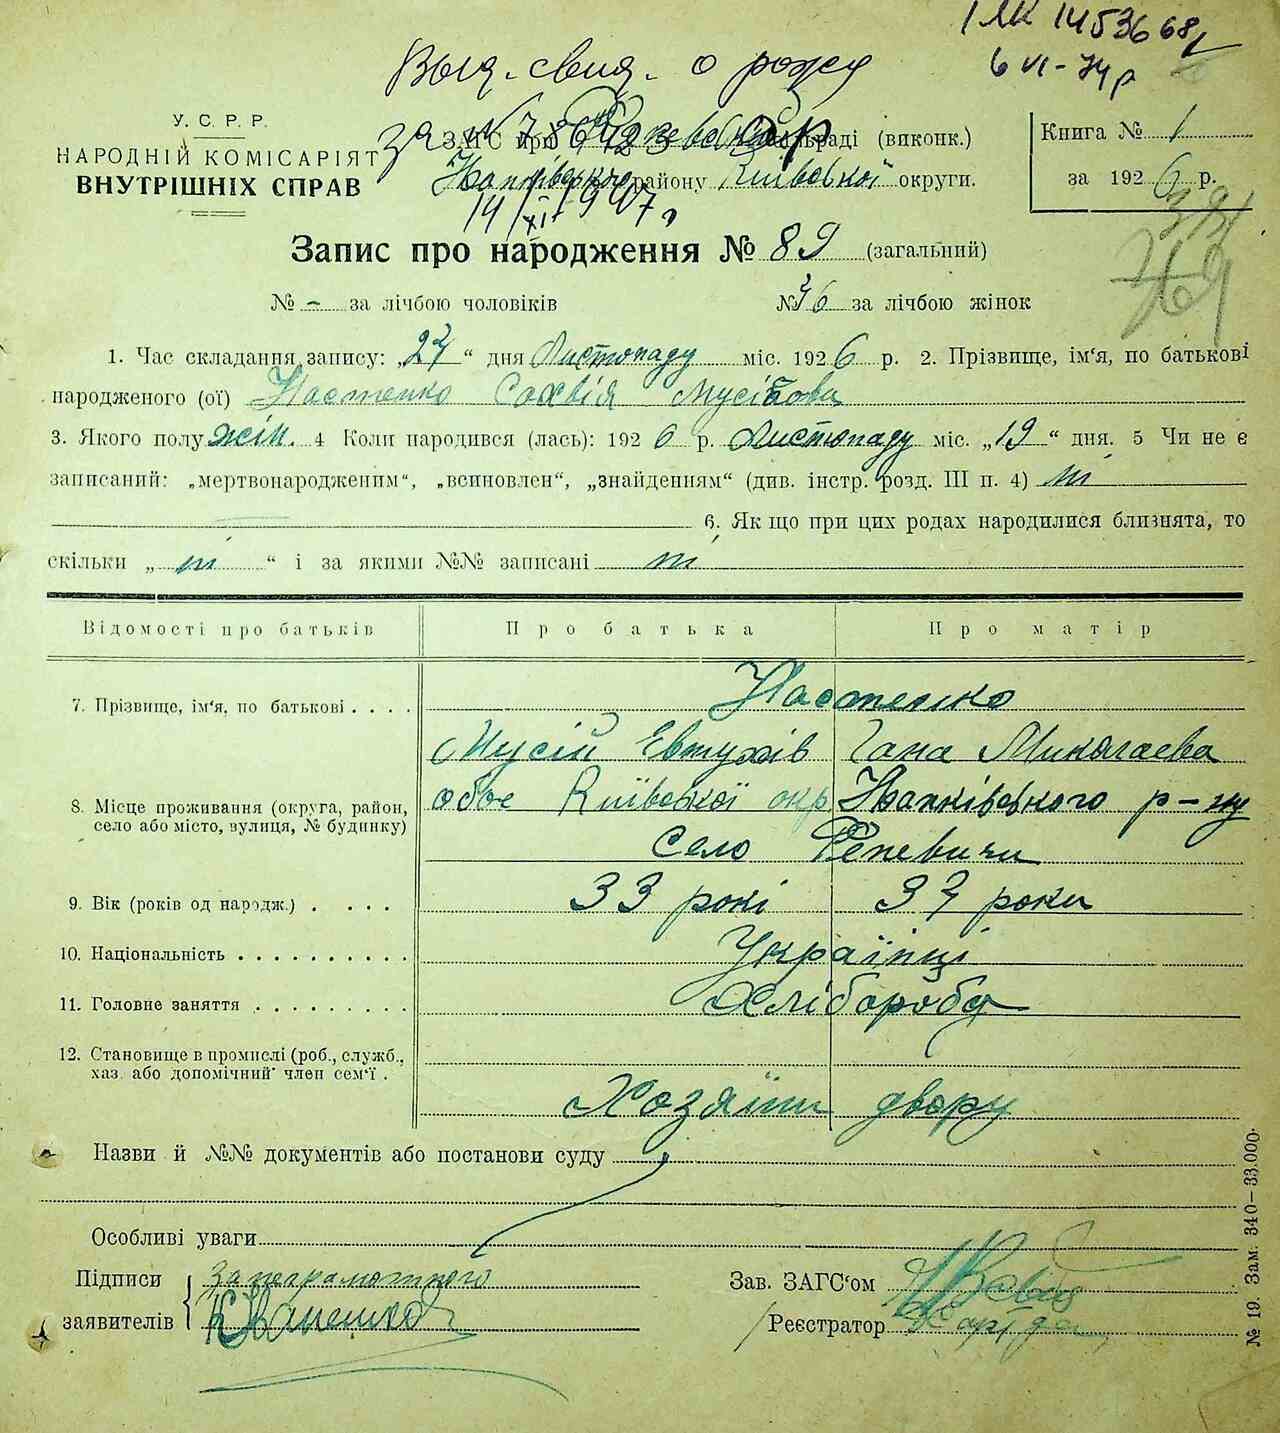 1 ЛК 1453668
6 VI-74 р
Выд. свид. о рожд
У. С. Р. Р.
НАРОДНІЙ КОМІСАРІЯТ
ВНУТРІШНІХ СПРАВ
за №
ЗАГС при сільраді (виконк.)
району Київської округи.
14/XI 1947 р
Книга № 1
за 1926 р.
Запис про народження № 89 (загальний)
№ – за лічбою чоловіків № 46 за лічбою жінок
1. Час складання запису: „27“ дня Листопаду міс. 1926 р. 2. Прізвище, ім‘я, по батькові
народженого (ої) Настенко Софія Мусієва
3. Якого полу жін. 4 Коли народився (лась): 1926 р. Листопаду міс. „19“ дня. 5 Чи не є
записаний: „мертвонародженим“, „всиновлен“, „знайденням“ (див. інстр. розд. III п. 4) ні
6. Як що при цих родах народилися близнята, то
скільки „ ні “ і за якими №№ записані ні
Відомості про батьків Про батька Про матір
7. Прізвище, ім‘я, по батькові . . . . Настенко
Мусій Евтухів Гана Миколаева
8. Місце проживання (округа, район,
село або місто, вулиця, № будинку)
обоє Київської окр. р-ну
село
9. Вік (років од народж.) . . . . 33 рокі 37 роки
10. Національність . . . . . . . . . . Українці
11. Головне заняття . . . . . . . . . Хлібороби
12. Становище в промислі (роб., служб.,
хаз. або допомічний член сем‘ї .
Хозяїни двору
Назви й №№ документів або постанови суду
Особливі уваги
Підписи
заявителів
за неграмотного
Іваненко
Зав. ЗАГС‘ом
Реєстратор
№ 19. Зам. 340–33.000.